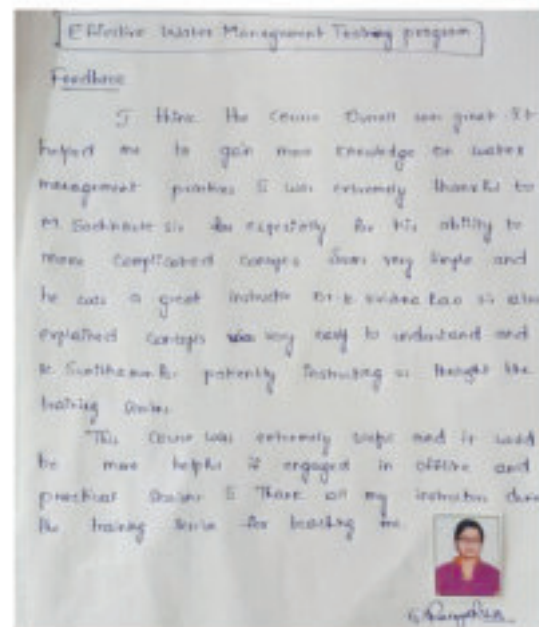 Effective Water Management Training program
Feedback
I think the course overall was great It
helped me to gain more knowledge on water
management practices I was extremely thankful to
M. sir for especially for his ability to
more complicated very simple and
he was a great instructor Dr. K. Krishna Rao sir also
explained concepts very easy to understand and
for patiently instructing us the
training
This course was extremely and it would
be more helpful if engaged in offline and
practical I Thank all my instructors
the training for teaching me.